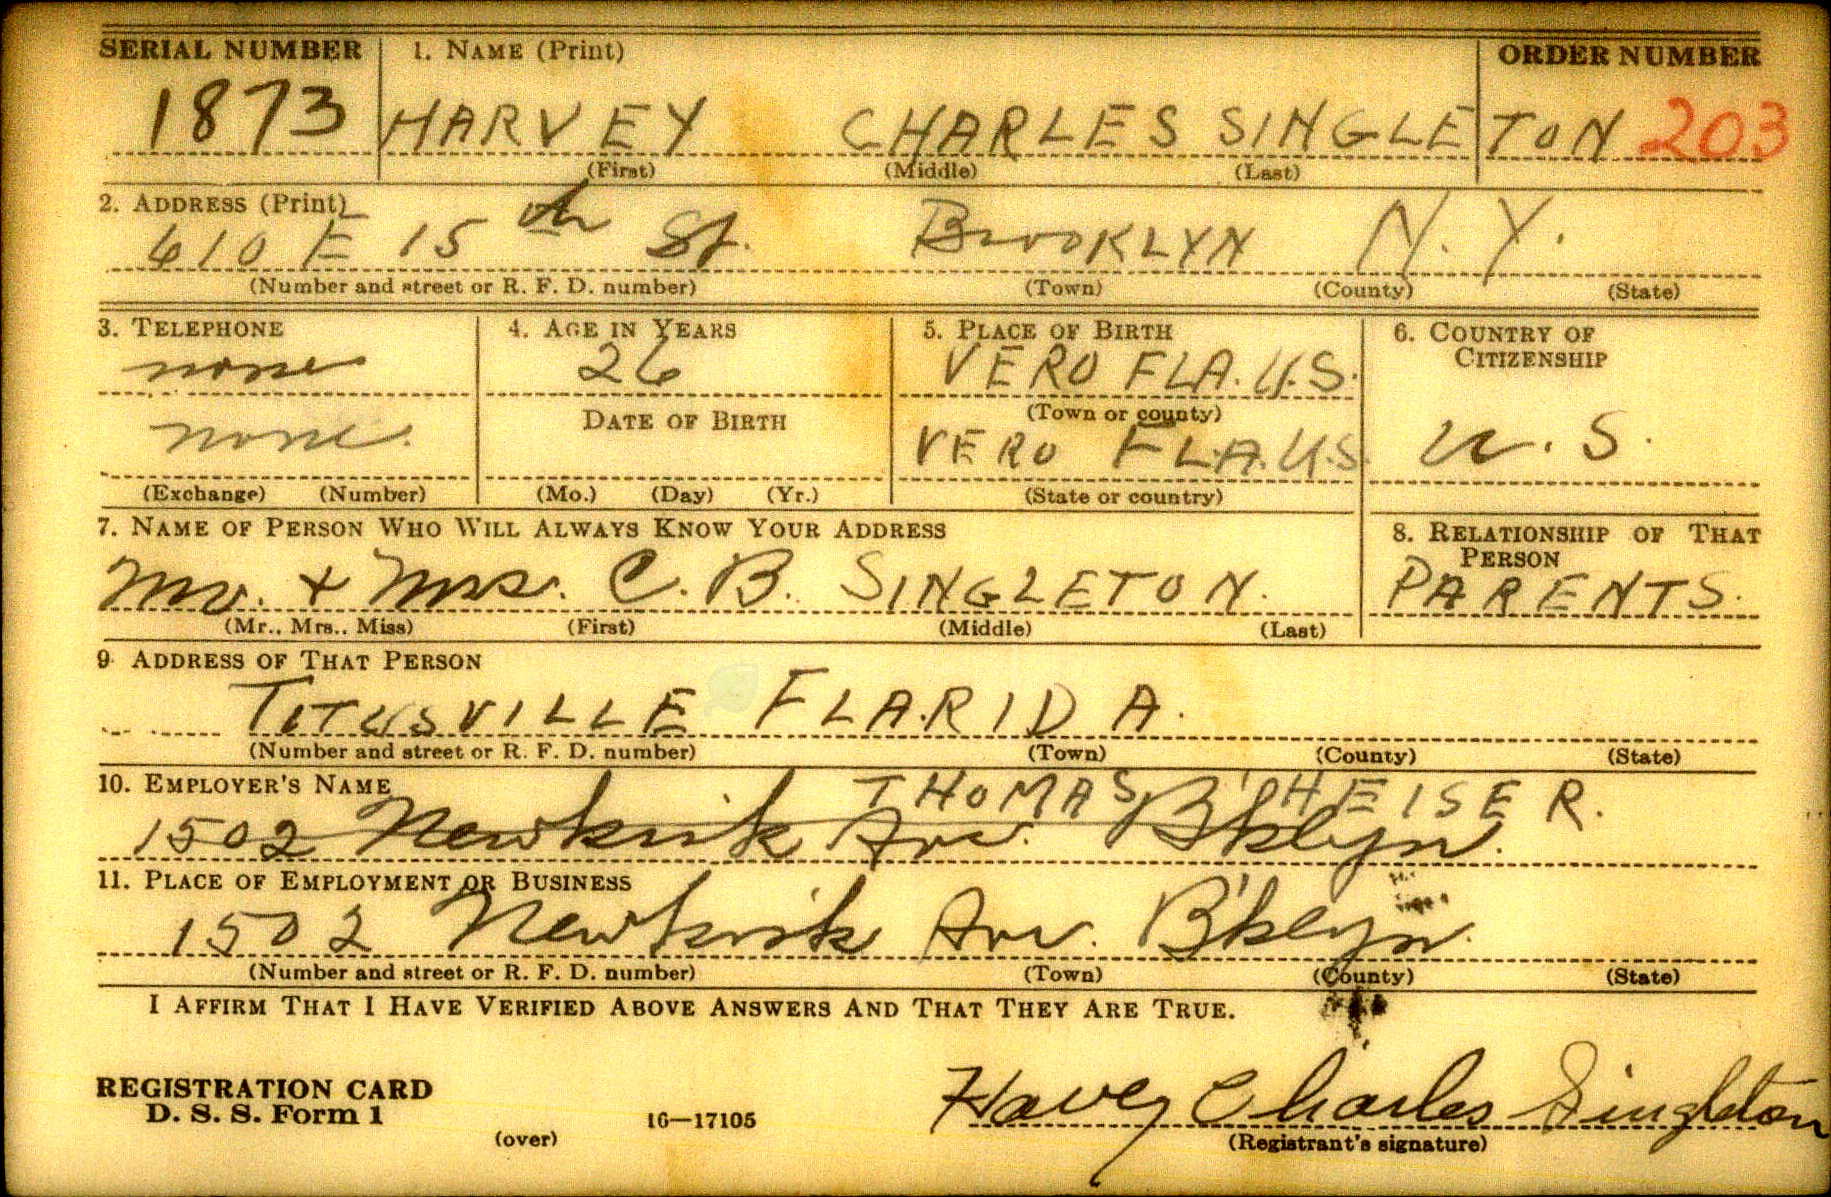 SERIAL NUMBER 1. NAME (Print) ORDER NUMBER
1873 HARVEY CHARLES SINGLETON 203
(First) (Middle) (Last)
2. ADDRESS (Print)
610 E 15th St. BROOKLYN N.Y.
(Number and street or R. F. D. number) (Town) (County) (State)
3. TELEPHONE 4. AGE IN YEARS 5. PLACE OF BIRTH 6. COUNTRY OF
CITIZENSHIP
none 26 VERO FLA. U.S.
DATE OF BIRTH (Town or county)
none. VERO FLA. U.S. U.S.
(Exchange) (Number) (Mo.) (Day) (Yr.) (State or country)
7. NAME OF PERSON WHO WILL ALWAYS KNOW YOUR ADDRESS 8. RELATIONSHIP OF THAT
PERSON
Mr. + Mrs. C. B. SINGLETON. PARENTS.
(Mr., Mrs., Miss) (First) (Middle) (Last)
9 ADDRESS OF THAT PERSON
TITUSVILLE FLARIDA.
(Number and street or R. F. D. number) (Town) (County) (State)
10. EMPLOYER'S NAME THOMAS PHEISER.
1502 Newkirk Ave. B'klyn.
11. PLACE OF EMPLOYMENT OR BUSINESS
1502 Newkirk Ave. B'klyn.
(Number and street or R. F. D. number) (Town) (County) (State)
I AFFIRM THAT I HAVE VERIFIED ABOVE ANSWERS AND THAT THEY ARE TRUE.
REGISTRATION CARD
D. S. S. Form 1 16—17105 Havey Charles Singleton
(over) (Registrant's signature)